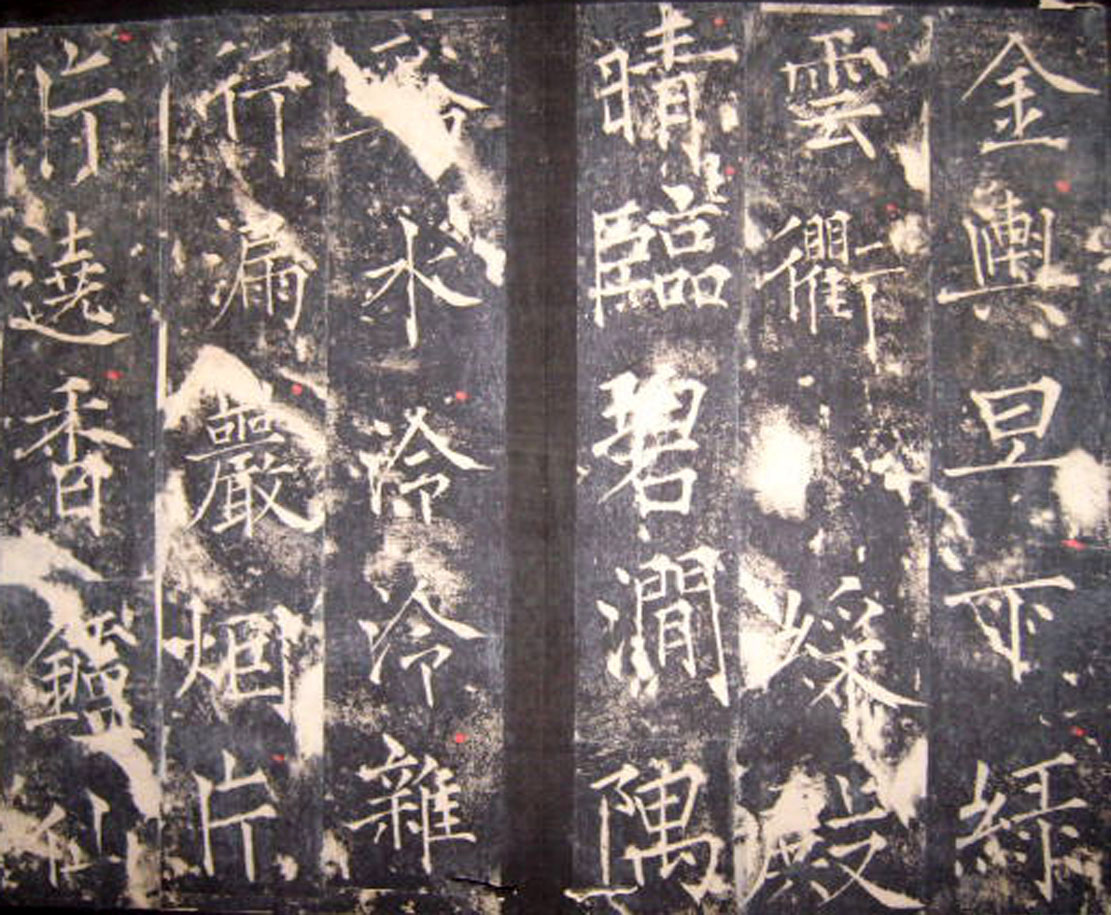 金輿旦下綠
雲衢綵殿
晴臨碧澗隅
水泠泠雜
行漏巖烟片
片遶香鑪仙